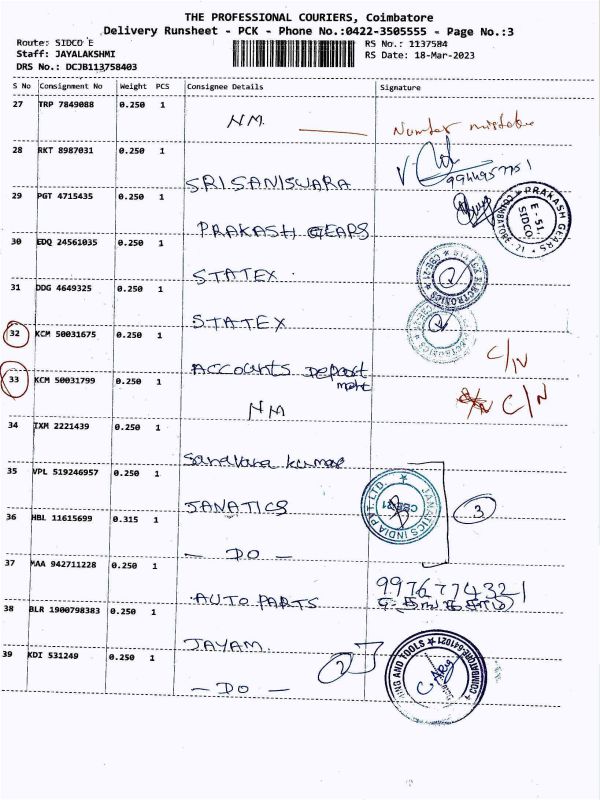 THE PROFESSIONAL COURIERS, Coimbatore
Delivery Runsheet - PCK - Phone No.:0422-3505555 - Page No.:3
Route: SIDCO E
RS No.: 1137584
Staff: JAYALAKSHMI
RS Date: 18-Mar-2023
DRS No.: DCJB113758403
S No Consignment No Weight PCS Consignee Details Signature
27 TRP 7849088 0.250 1
NM. Number mistake
28 RKT 8987031 0.250 1
SRI SANISWARA
29 PGT 4715435 0.250 1
PRAKASH GEARS
PRAKASH GEARS
E - 51,
SIDCO,
30 EDQ 24561035 0.250 1
STATEX
STATEX ELECTRONICS
CBE-21
31 DDG 4649325 0.250 1
STATEX
32 KCM 50031675 0.250 1
Accounts Depart
ment
C/N
33 KCM 50031799 0.250 1
NM
C/N
34 IXM 2221439 0.250 1
35 VPL 519246957 1
JANATICS
JANATICS INDIA PVT. LTD.
CBE-21
3
36 HBL 11615699 0.315 1
— DO —
37 MAA 942711228 0.250 1
AUTO PARTS
9976774321
38 BLR 1900798383 0.250 1
JAYAM.
2
39 KDI 531249 0.250 1
— DO —
AND TOOLS
COIMBATORE-641021